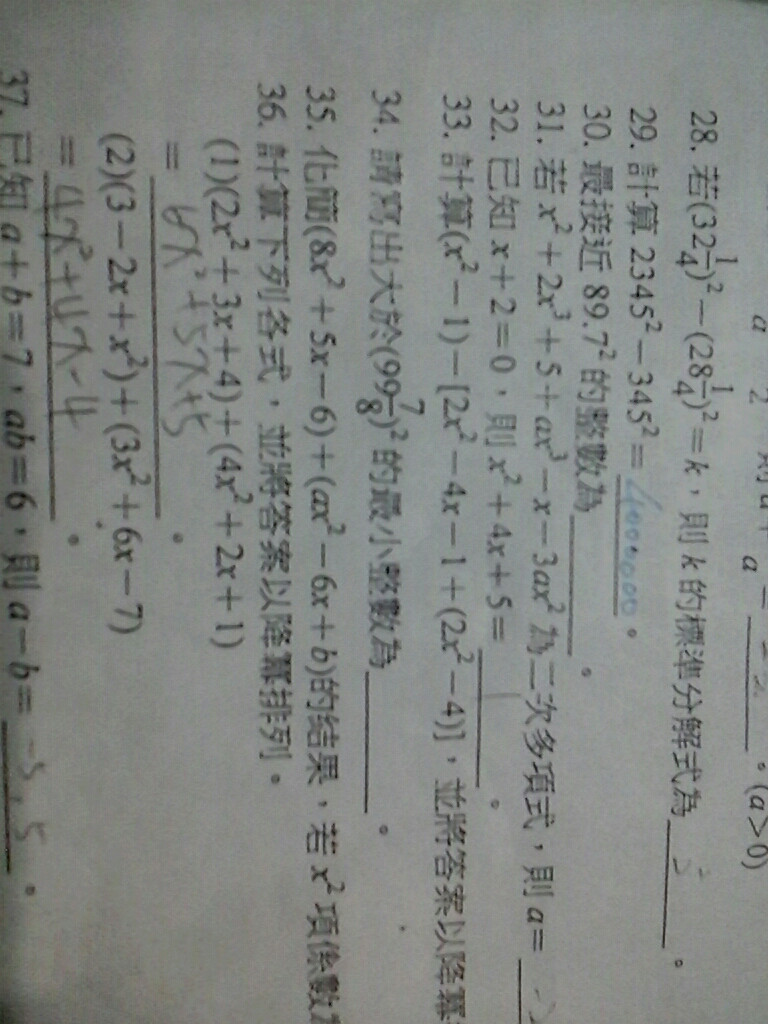 a 2 則
a = -2 。(a>0)
28. 若(32 1/4)² − (28 1/4)² = k,則 k 的標準分解式為 。
29. 計算 2345² − 345² = 4000000。
30. 最接近 89.7² 的整數為 。
31. 若 x² + 2x³ + 5 + ax³ − x − 3ax² 為二次多項式,則 a = -2
32. 已知 x + 2 = 0,則 x² + 4x + 5 = 1 。
33. 計算(x² − 1) − [2x² − 4x − 1 + (2x² − 4)],並將答案以降冪
34. 請寫出大於(99 7/8)² 的最小整數為 。
35. 化簡(8x² + 5x − 6) + (ax² − 6x + b)的結果,若 x² 項係數為
36. 計算下列各式,並將答案以降冪排列。
(1)(2x² + 3x + 4) + (4x² + 2x + 1)
= 6x²+5x+5 。
(2)(3 − 2x + x²) + (3x² + 6x − 7)
= 4x²+4x-4 。
37. 已知 a + b = 7,ab = 6,則 a − b = -5,5 。